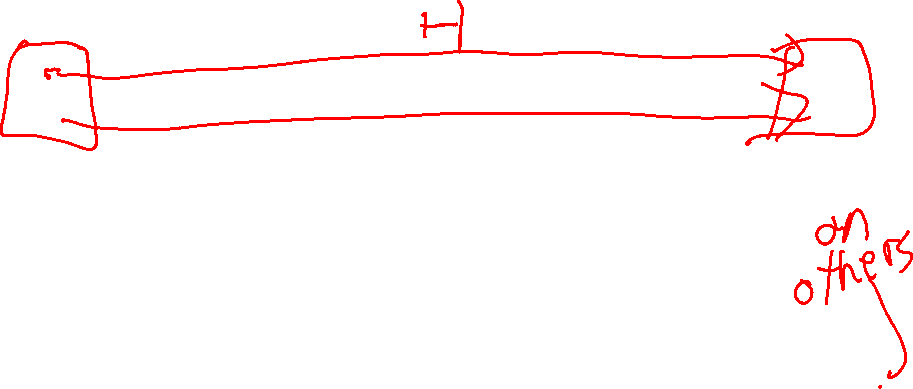 on
others